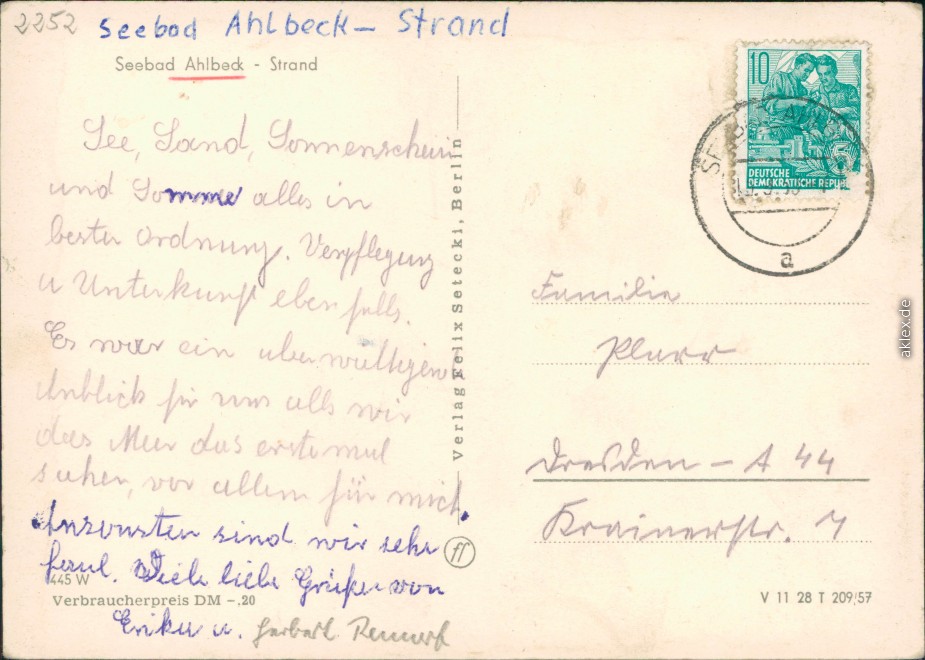 2252 Seebad Ahlbeck - Strand
Seebad Ahlbeck - Strand
See, Sand, Sonnenschein
und Sonne alles in
bester Ordnung. Verpflegung
u Unterkunft ebenfalls.
Es war ein überwältigen
Anblick für uns alls wir
das Meer das erste mal
sahen, vor allem für mich.
Ansonsten sind wir sehr
faul. Viele liebe Grüße von
Erika u. Herbert
445 W
Verbraucherpreis DM -.20
Verlag Felix Setecki, Berlin
ff
10
DEUTSCHE
DEMOKRATISCHE REPUBLIK
a
Familie
Dresden - A 44
Krainerstr. 7
V 11 28 T 209/57
aklex.de